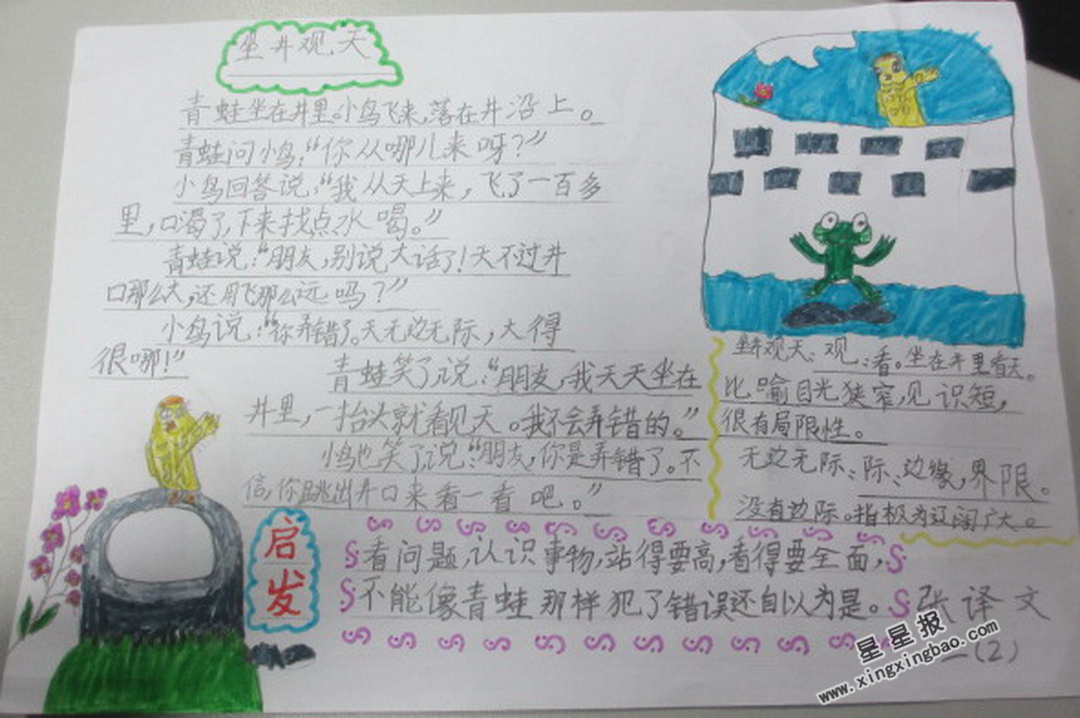 坐井观天
青蛙坐在井里。小鸟飞来,落在井沿上。
青蛙问小鸟:“你从哪儿来呀?”
小鸟回答说:“我从天上来,飞了一百多
里,口渴了,下来找点水喝。”
青蛙说:“朋友,别说大话了!天不过井
口那么大,还用飞那么远吗?”
小鸟说:“你弄错了。天无边无际,大得
很哪!”
青蛙笑了说:“朋友,我天天坐在
井里,一抬头就看见天。我不会弄错的。”
小鸟也笑了说:“朋友,你是弄错了。不
信,你跳出井口来看一看吧。”
坐井观天:观:看。坐在井里看天。
比喻目光狭窄,见识短,
很有局限性。
无边无际:际:边缘,界限。
没有边际。指极为辽阔广大。
启发
看问题,认识事物,站得要高,看得要全面,
不能像青蛙那样犯了错误还自以为是。
张译文
二(2)
星星报
www.xingxingbao.com